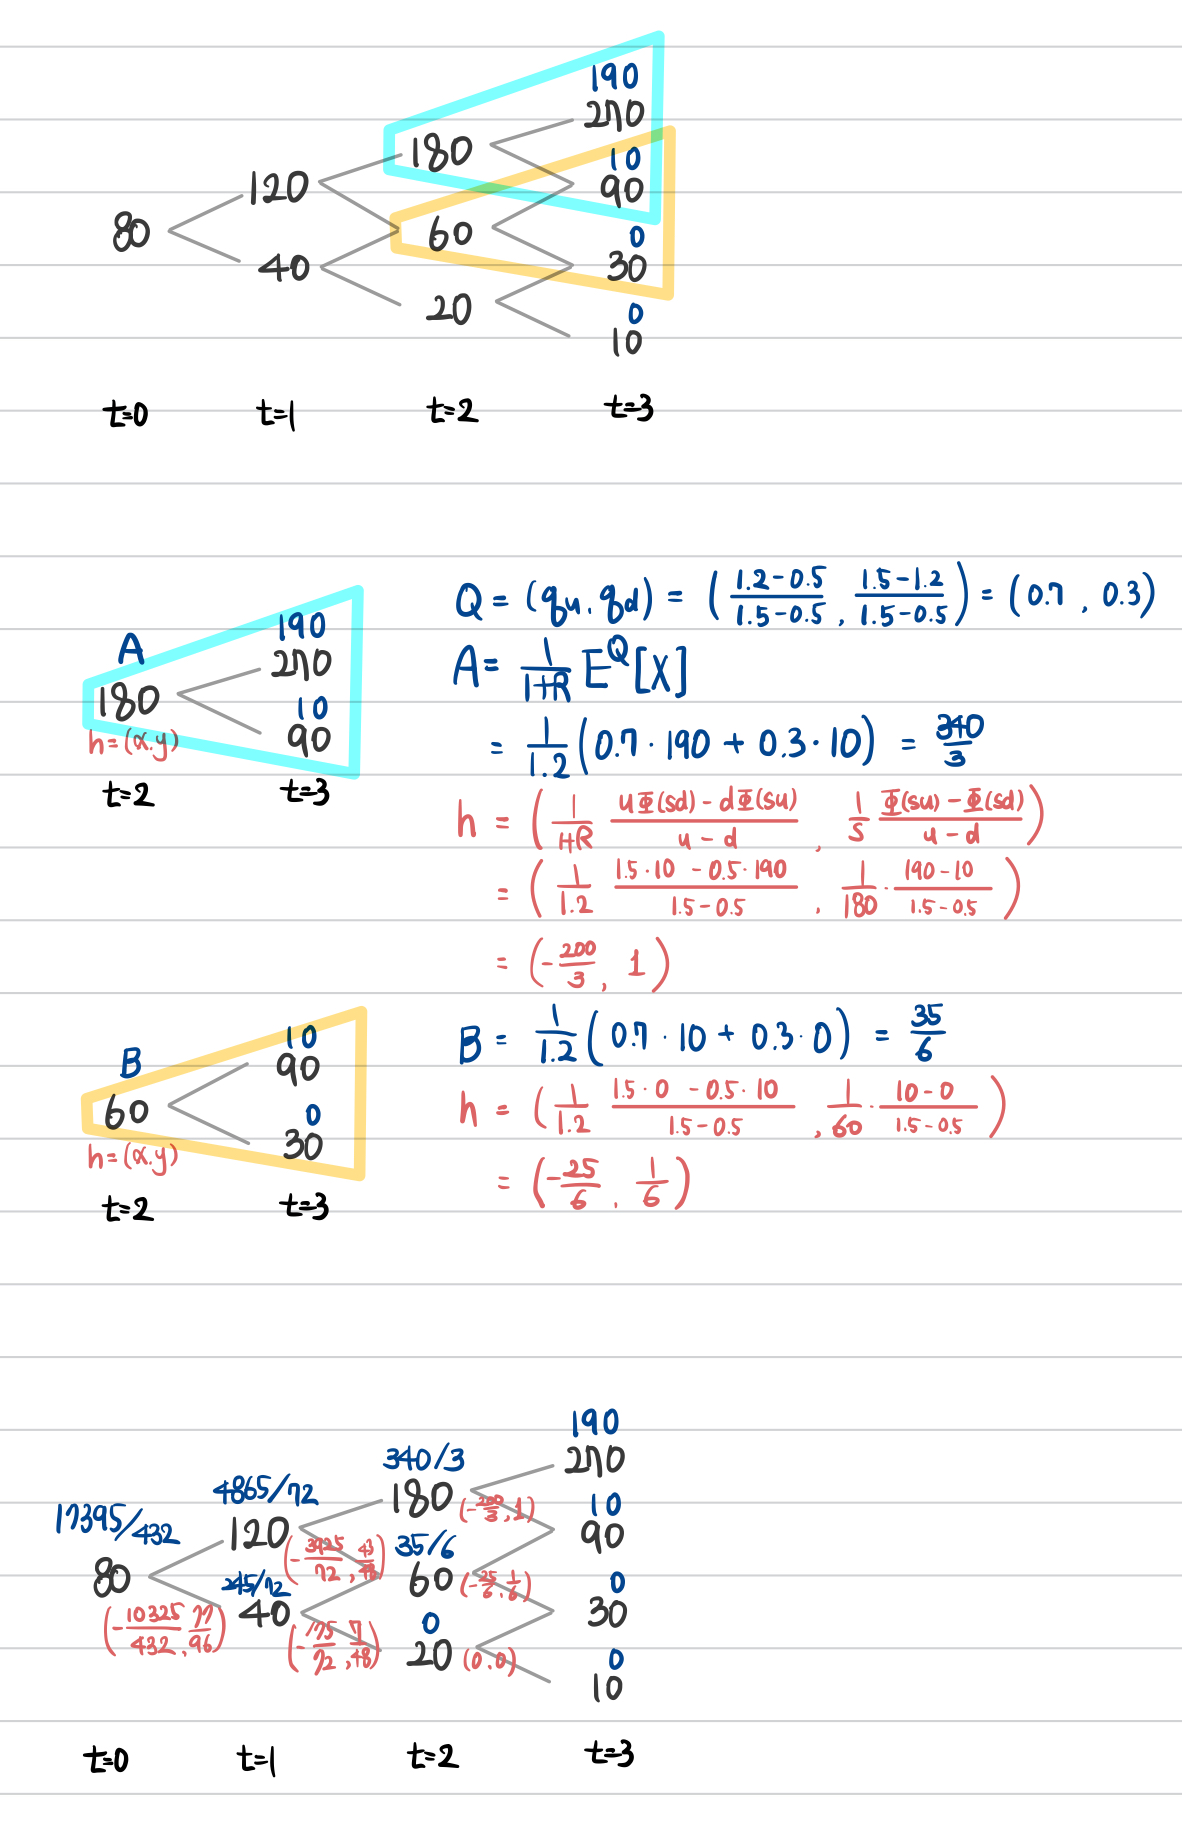 190
270
180
10
120
90
80
60
0
40
30
20
0
10
t=0 t=1 t=2 t=3
Q = (qu, qd) = ( (1.2-0.5)/(1.5-0.5) , (1.5-1.2)/(1.5-0.5) ) = (0.7 , 0.3)
A
190
270
180
10
90
h=(x.y)
t=2 t=3
A = 1/(1+R) E^Q[X]
= 1/1.2 (0.7 · 190 + 0.3 · 10) = 340/3
h = ( 1/(1+R) (uΦ(sd) - dΦ(su))/(u - d) , 1/s (Φ(su) - Φ(sd))/(u - d) )
= ( 1/1.2 (1.5 · 10 - 0.5 · 190)/(1.5 - 0.5) , 1/180 · (190 - 10)/(1.5 - 0.5) )
= (-200/3 , 1)
B
10
90
60
0
30
h=(x.y)
t=2 t=3
B = 1/1.2 (0.7 · 10 + 0.3 · 0) = 35/6
h = ( 1/1.2 (1.5 · 0 - 0.5 · 10)/(1.5 - 0.5) , 1/60 · (10 - 0)/(1.5 - 0.5) )
= (-25/6 , 1/6)
190
340/3 270
4865/72 180 (-200/3, 1) 10
17395/432 120 (-3925/72, 43/48) 35/6 90
80 245/72 60 (-25/6, 1/6) 0
(-10325/432, 77/96) 40 (-175/72, 7/48) 0 30
20 (0.0) 0
10
t=0 t=1 t=2 t=3